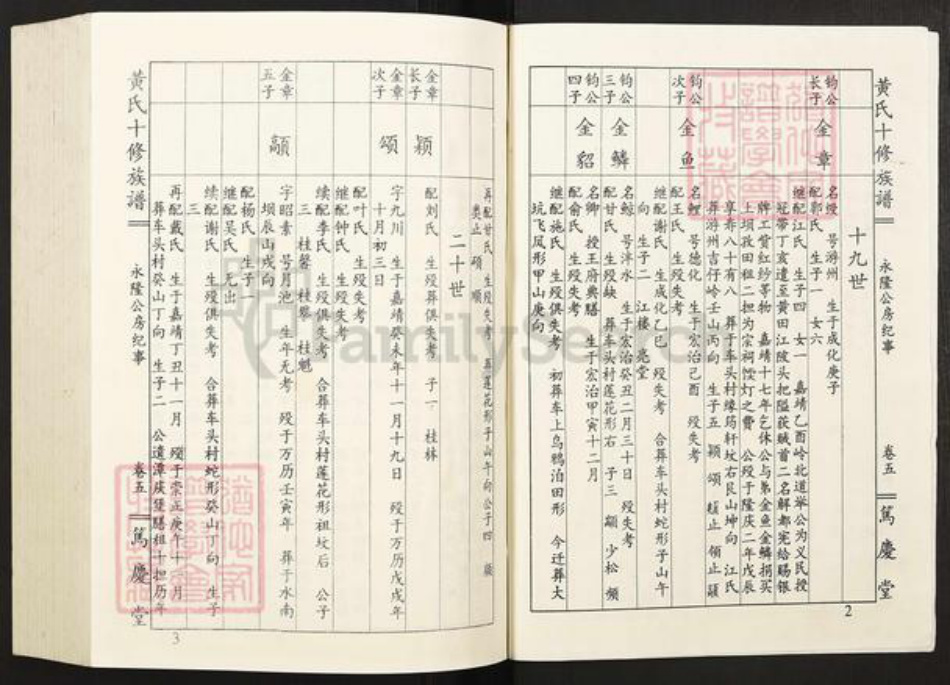 黄氏十修族谱
永隆公房纪事
卷五
篤慶堂
2
十九世
钧公长子
金章
名绶 号游州 生于成化庚子
配郭氏 生子一 女六
继配江氏 生子四 女一 嘉靖乙酉岭北道举公为义民授
冠带丁亥遣至黄田江陂头把隘获贼首二名解都宪给赐银
牌工赏红纱等物 嘉靖十七年乞休公与弟金鱼金鳞捐买
上坝孜田租二担为宗祠馈灯之费 公殁于隆庆二年戊辰
享寿八十有八 葬于车头村缘筠轩坟右艮山坤向 江氏
葬游州吉仔岭壬山丙向 生子五 颖 颂 止 领止 颛
钧公次子
金鱼
名鲤 号德化 生于宏治己酉 殁失考
配王氏 生殁失考
继配谢氏 生成化乙巳 殁失考 合葬车头村蛇形子山午
向 生子二 江楼 亮堂
钧公三子
金鳞
名鲸 号泮水 生于宏治癸丑二月三十日 殁失考
配甘氏 生殁缺 葬车头村莲花形右 子三 颛 少松 颁
钧公四子
金貂
名卿 授王府典膳 生于宏治甲寅十二月
配俞氏 生殁失考
继配施氏 生殁俱失考 初葬车上乌鸦泊田形 今迁葬大
坑飞凤形甲山庚向
再配甘氏 生殁失考 葬莲花形子山午向公子四
类止 硕 顺
二十世
金章长子
颖
配刘氏 生殁葬俱失考 子一 桂林
金章次子
颂
字九川 生于嘉靖癸未年十一月十九日 殁于万历戊戌年
十月初三日
配叶氏 生殁失考
继配钟氏 生殁失考
续配李氏 生殁俱失考 合葬车头村莲花形祖坟后 公子
三 桂馨 桂 桂魁
金章五子
颛
字昭素 号月池 生年无考 殁于万历壬寅年 葬于水南
坝辰山戌向
配杨氏 生子一
继配吴氏 无出
续配谢氏 生殁俱失考 合葬车头村蛇形癸山丁向 生子
三
再配戴氏 生于嘉靖丁丑十一月 殁于崇正庚午十一月
葬车头村癸山丁向 生子二 公遗潭 膳租十担历年
黄氏十修族谱
永隆公房纪事
卷五
篤慶堂
3
FamilySearch